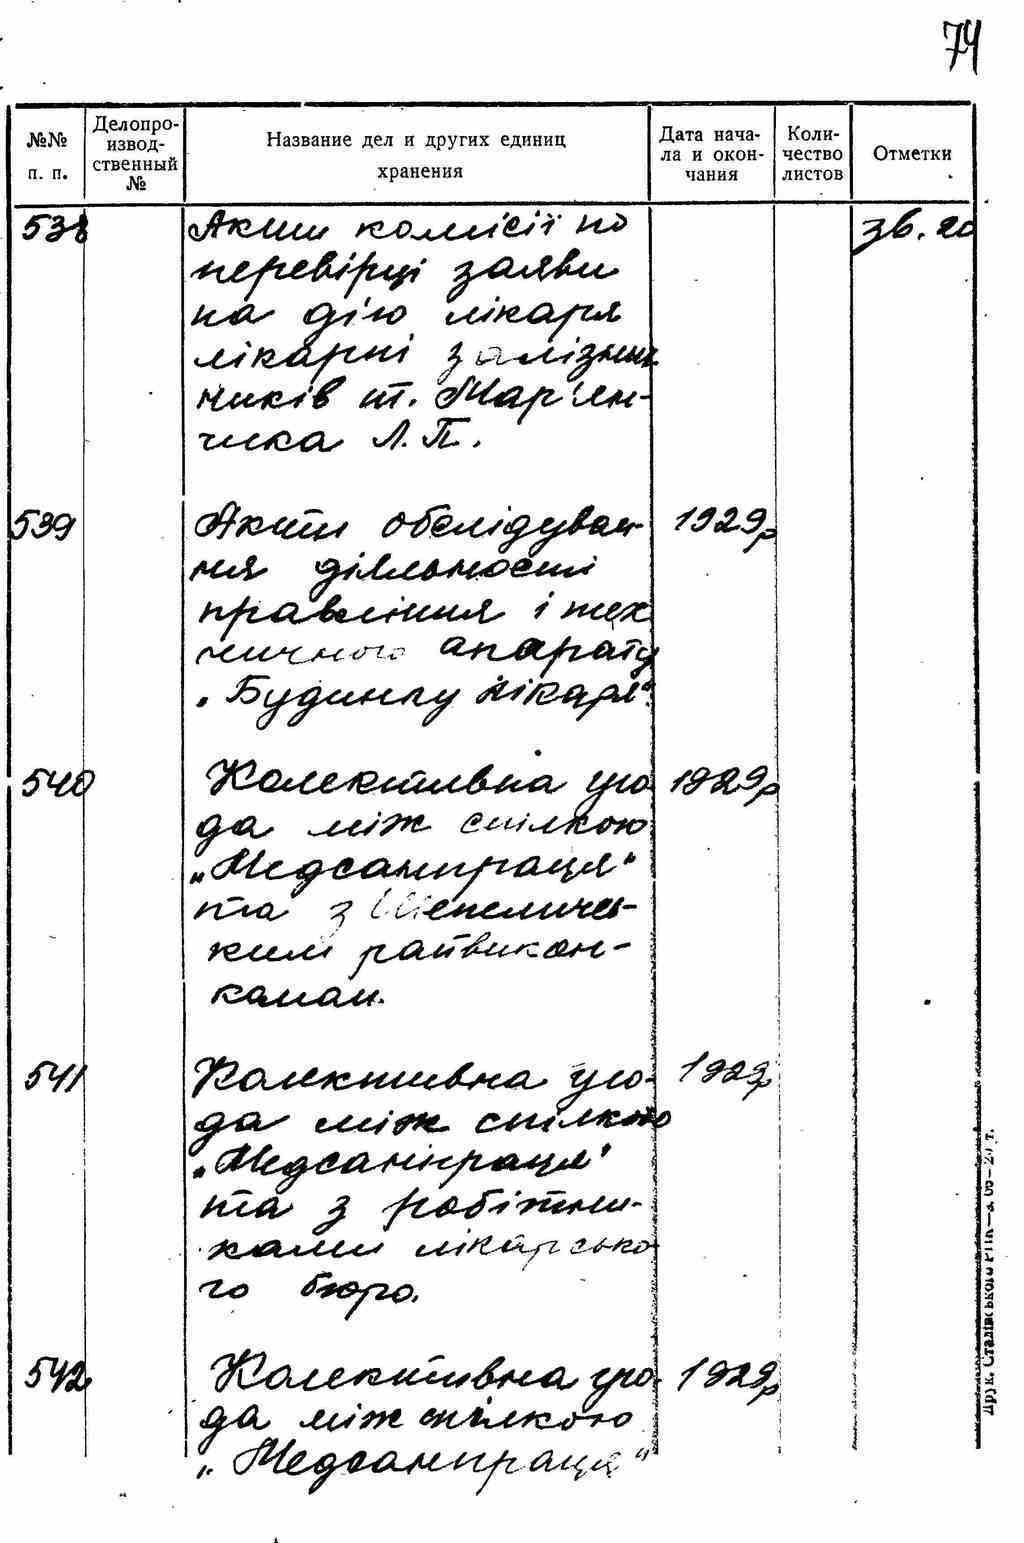 74
№№ п. п.
Делопро-
извод-
ственный
№
Название дел и других единиц
хранения
Дата нача-
ла и окон-
чания
Коли-
чество
листов
Отметки
538 Акти комісії по зв. 20
перевірці заяви
на дію лікаря
лікарні залізни
ників т. Мар'ян-
чика Л.П.
539 Акти обслідуван- 1929р
ня діяльності
правління і тех
нічного апарату
„Будинку лікаря".
540 Колективна уго 1929р
да між спілкою
„Медсанпраця"
та з Шепеличсь-
ким райвикон-
комом.
541 Колективна уго- 1929р
да між спілкою
„Медсанпраця"
та з робітни-
ками лікарсько
го бюро.
542 Колективна уго- 1929р
да між спілкою
„Медсанпраця"
Друк. Сталінського